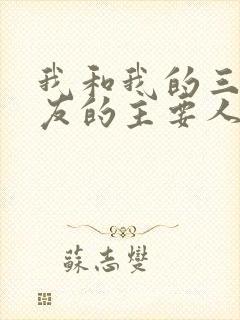 我和我的三
友的主要人
蘇志燮